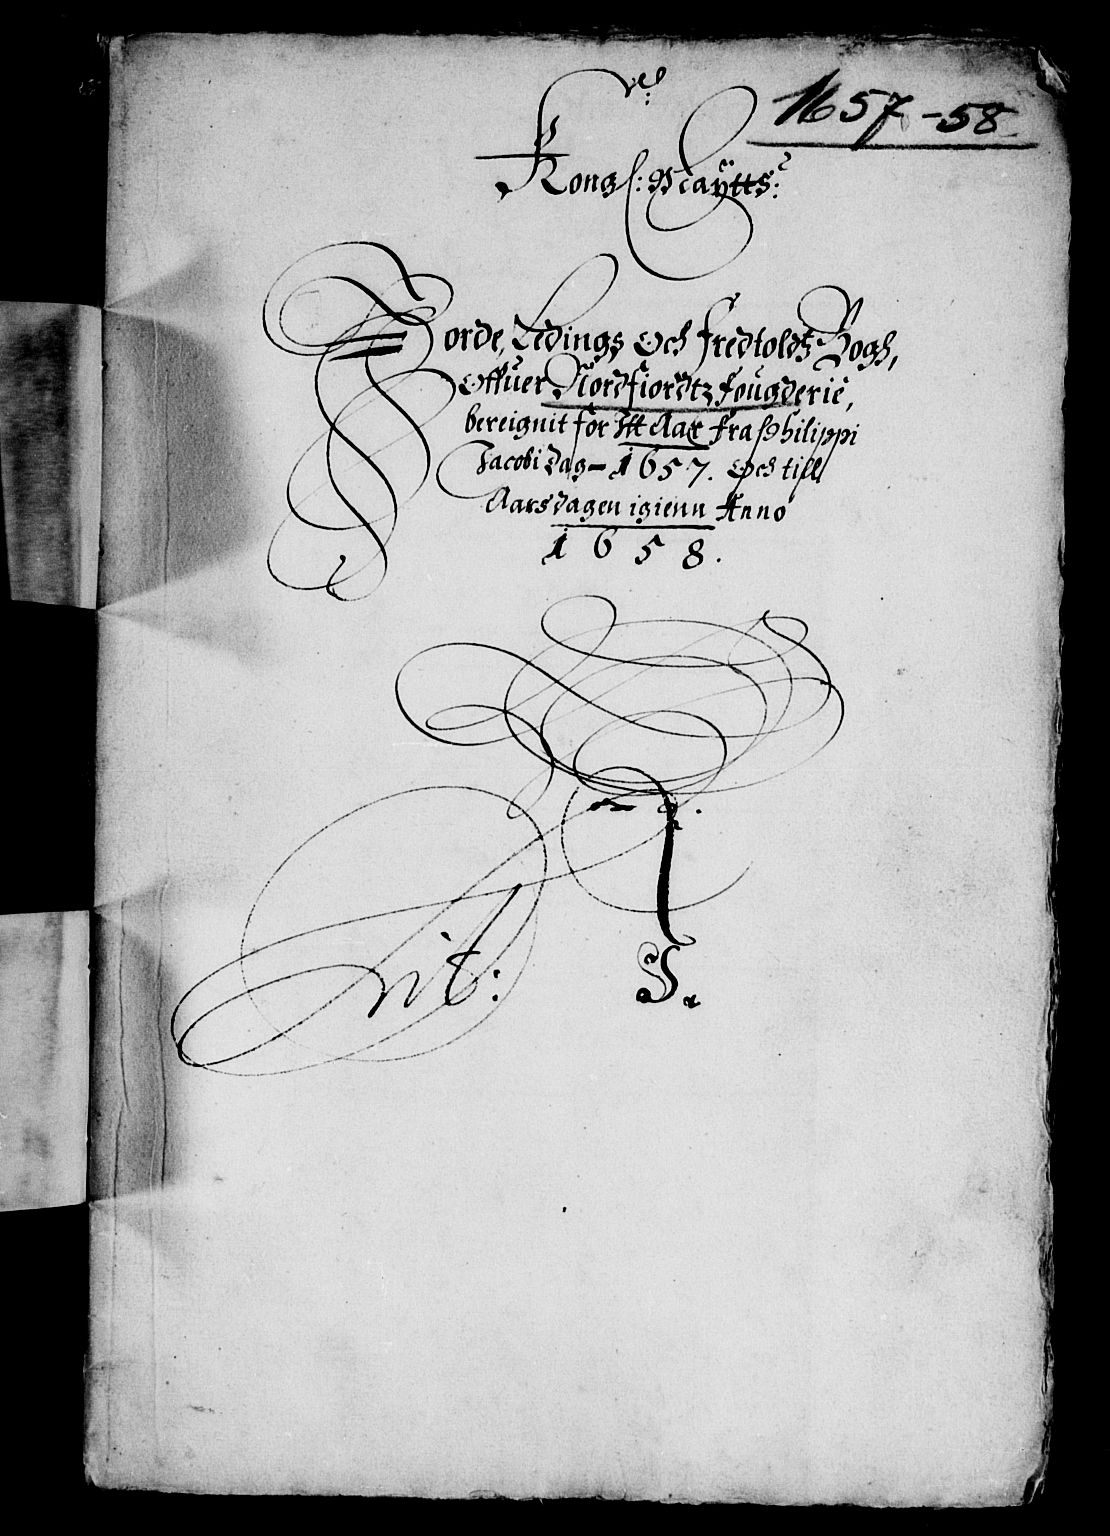 1657-58
Kongl: Maÿtts:
Jorde, Ledings Och Fredtoldtz Bogh,
Offuer Nordfiordtz fougderie,
bereignit for Itt Aar fra Philippi
Jacobi dag 1657. Och till
Aarsdagen igienn Anno
1658.
Lit: J.